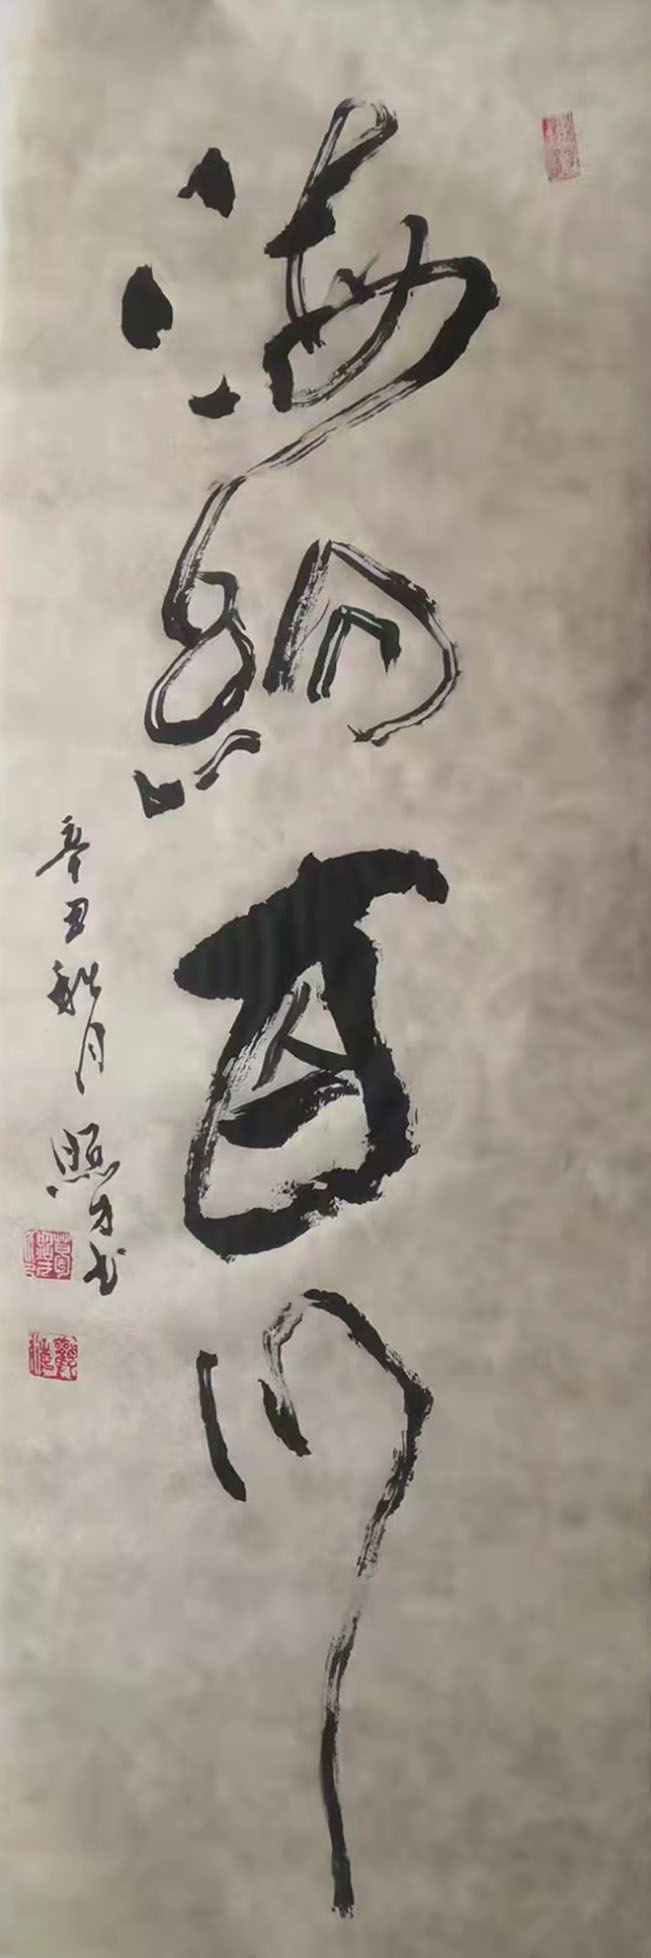 海納百川
辛丑秋月 照方书